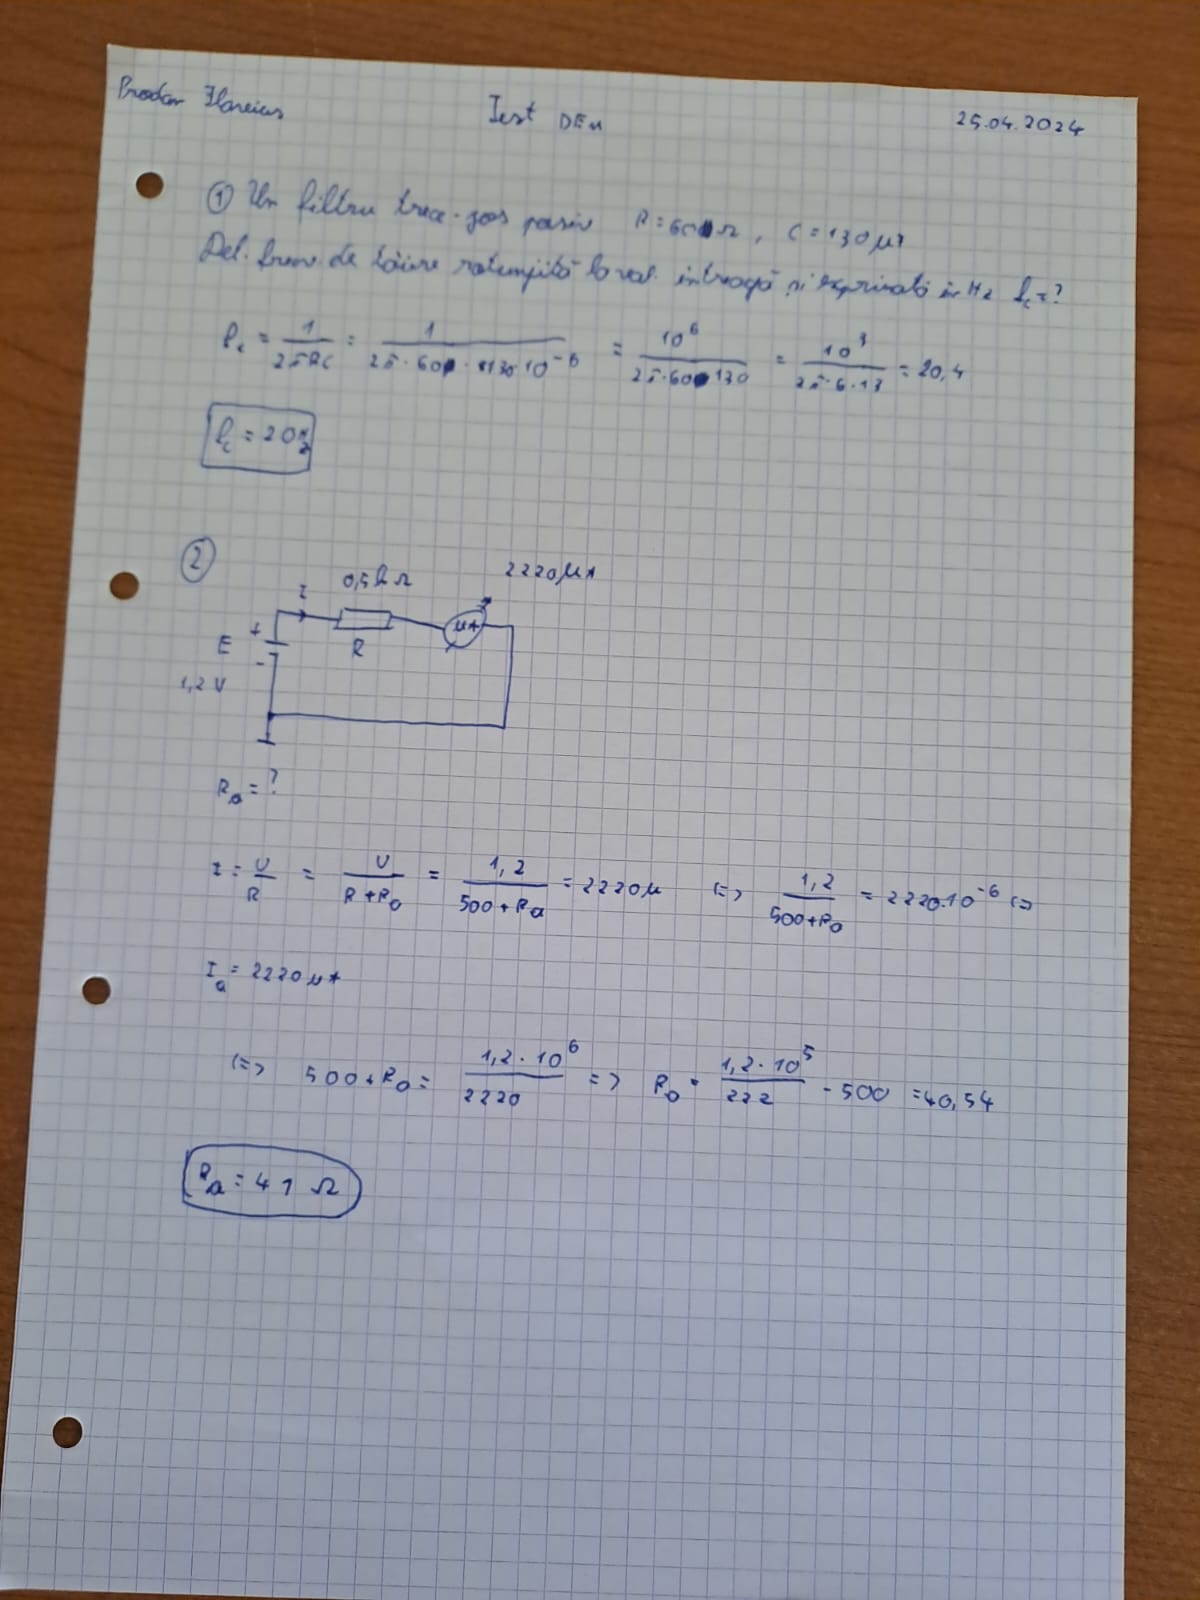 Prodan Test DEM 25.04.2024
① Un filtru trece-jos pasiv R=60Ω, C=130μF
Det. frecv. de tăiere rotunjită la val. întreagă și exprimată în Hz f_c=?
f_c = 1/(2πRC) = 1/(2π·60·130·10^-6) = 10^6/(2π·60·130) = 10^3/(2π·6·13) = 20,4
f_c = 20Hz
②
0,5kΩ 2220μA
I
+ μA
E R
-
1,2V
R_a = ?
I = U/R = U/(R+R_a) = 1,2/(500+R_a) = 2220μ (=> 1,2/(500+R_a) = 2220·10^-6 (=>
I_a = 2220μA
(=> 500+R_a = 1,2·10^6/2220 => R_a = 1,2·10^5/222 - 500 = 40,54
R_a = 41 Ω